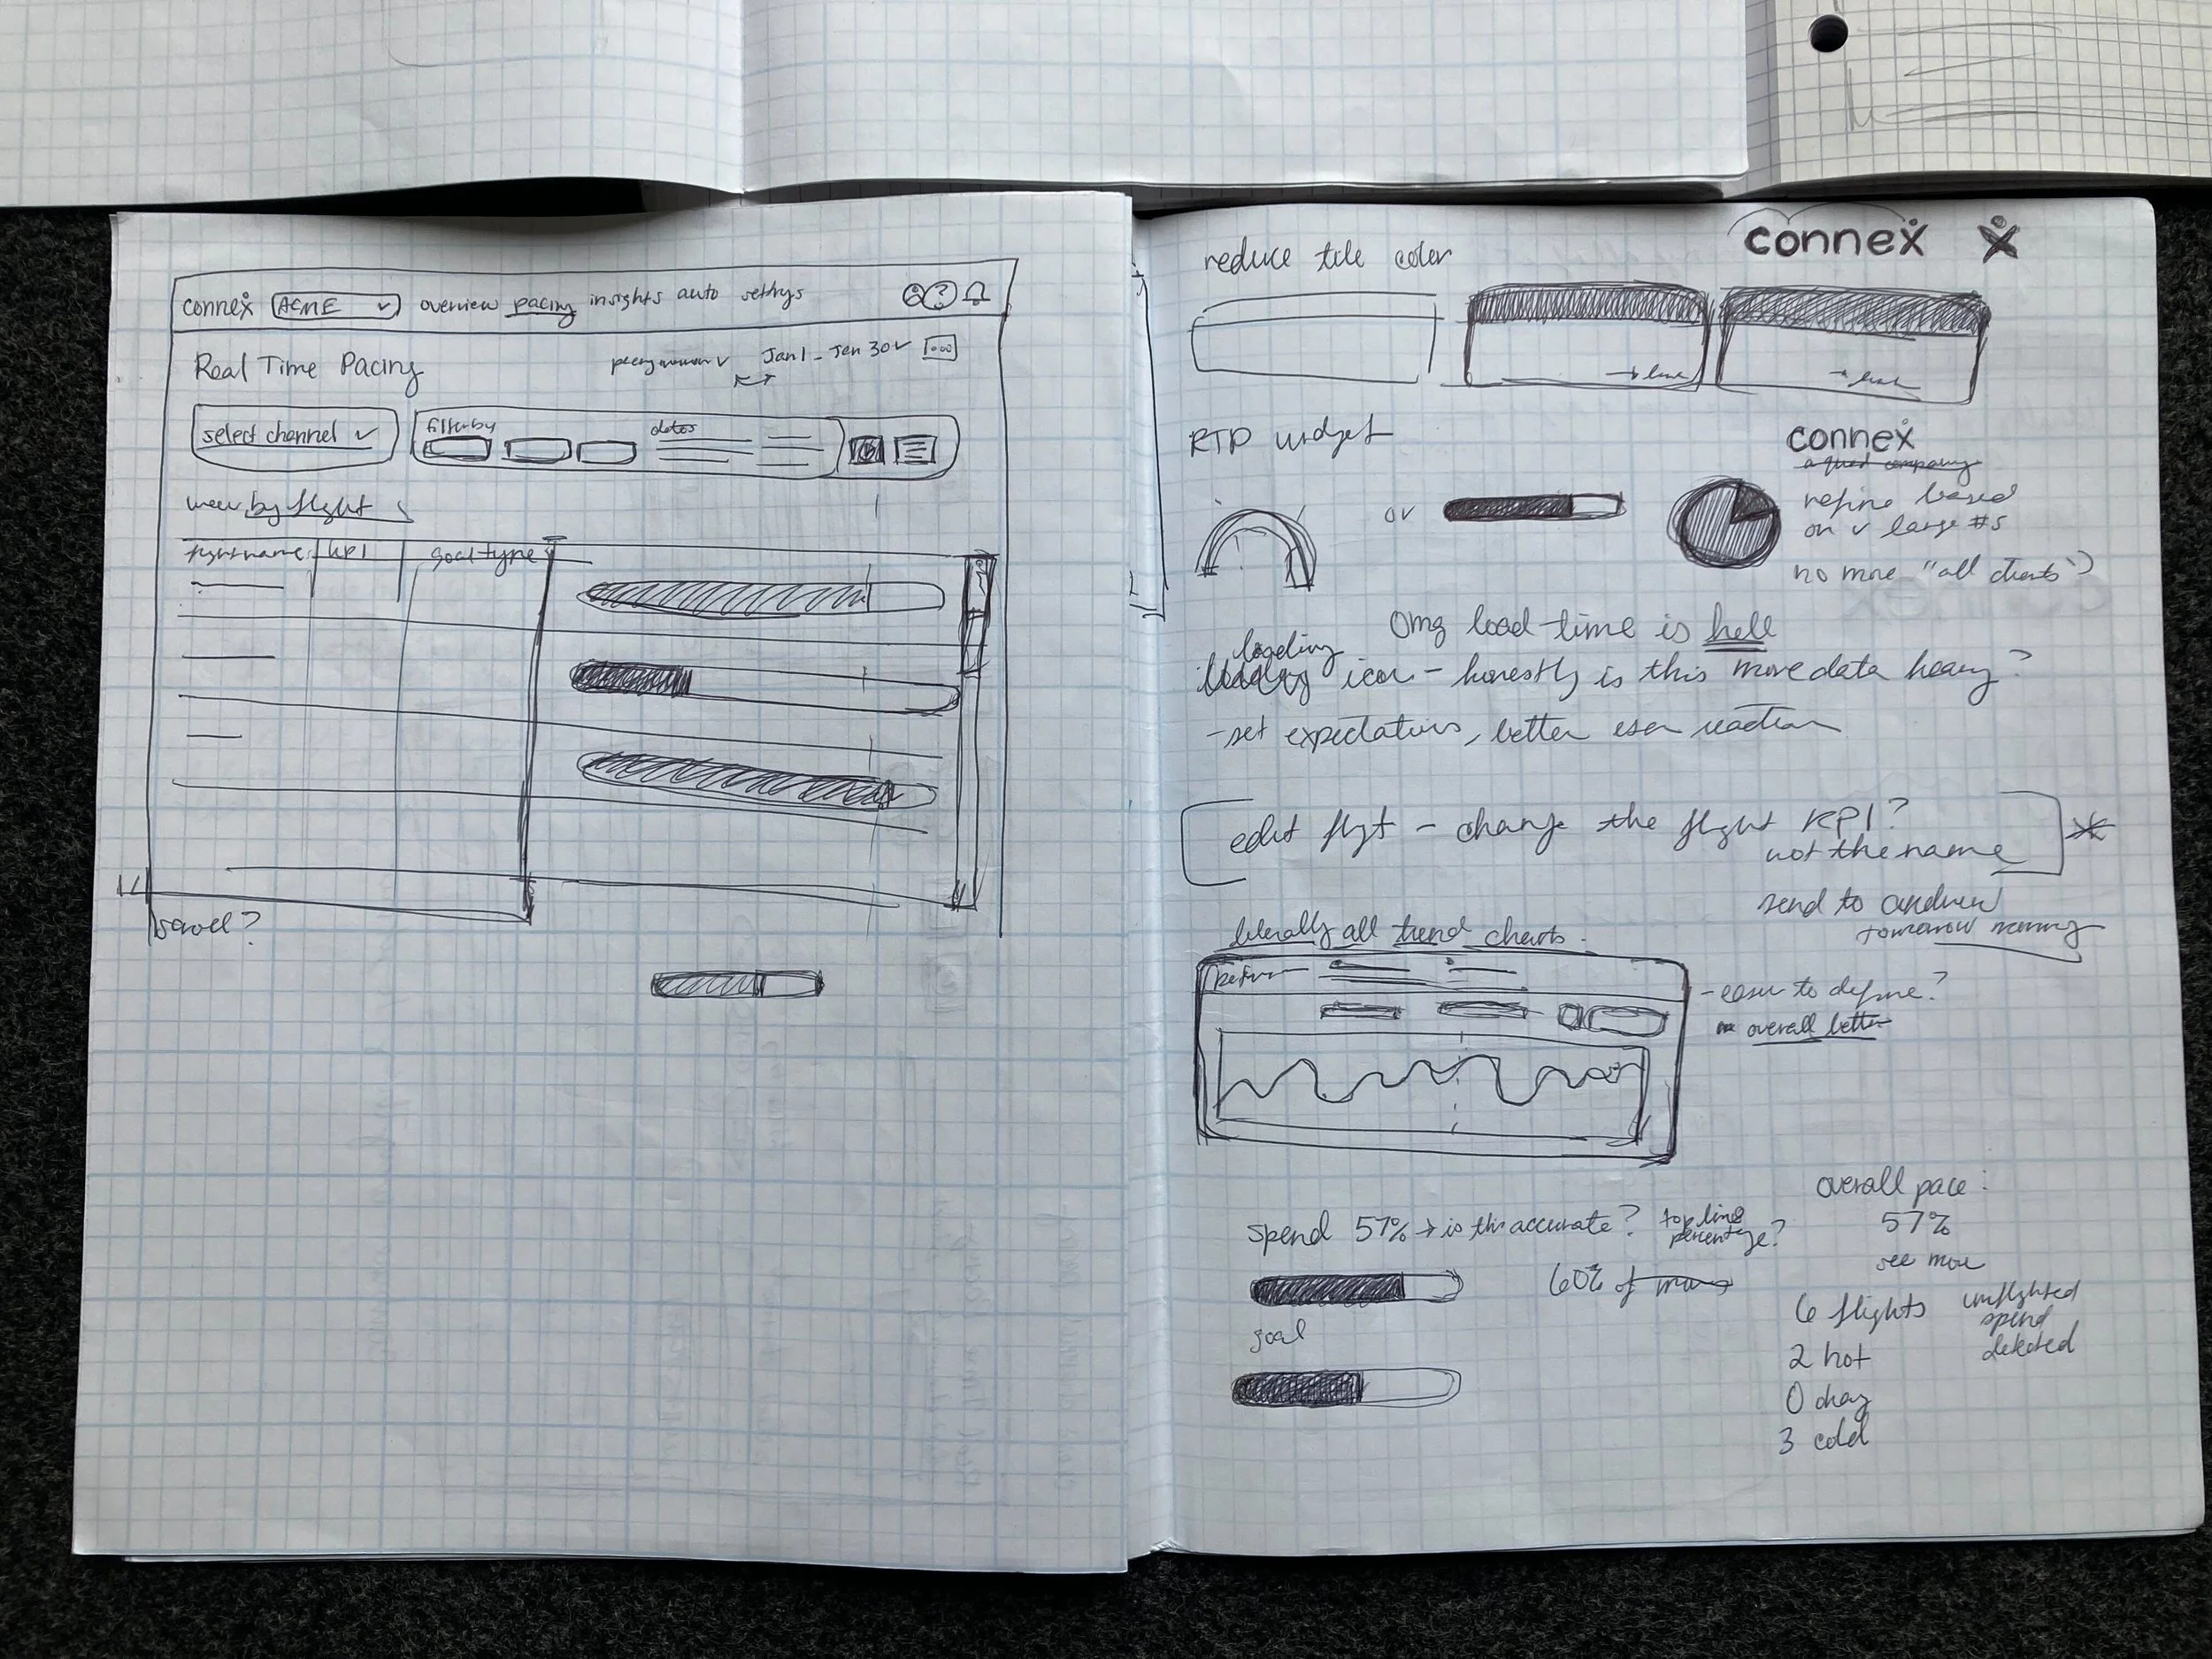 connex ACME overview pacing insights auto settngs
?
Real Time Pacing
Jan 1 - Jan 30
select channel
filter by
dates
view by flight
flight name KPI goal type
scroll?
connex
reduce tile color
→ link
→ link
RTP widget
or
connex
refine based
on v large #s
no more "all clients"?
omg load time is hell
loading
icon - honestly is this more data heavy?
- set expectations, better user reaction
edit flight - change the flight KPI?
not the name
send to andrew
tomorrow morning
literally all trend charts.
- easier to define?
overall better
overall pace:
57%
see more
spend 57% → is this accurate? top line
percentage?
60% of
goal
6 flights
2 hot
0 okay
3 cold
unflighted
spend
detected